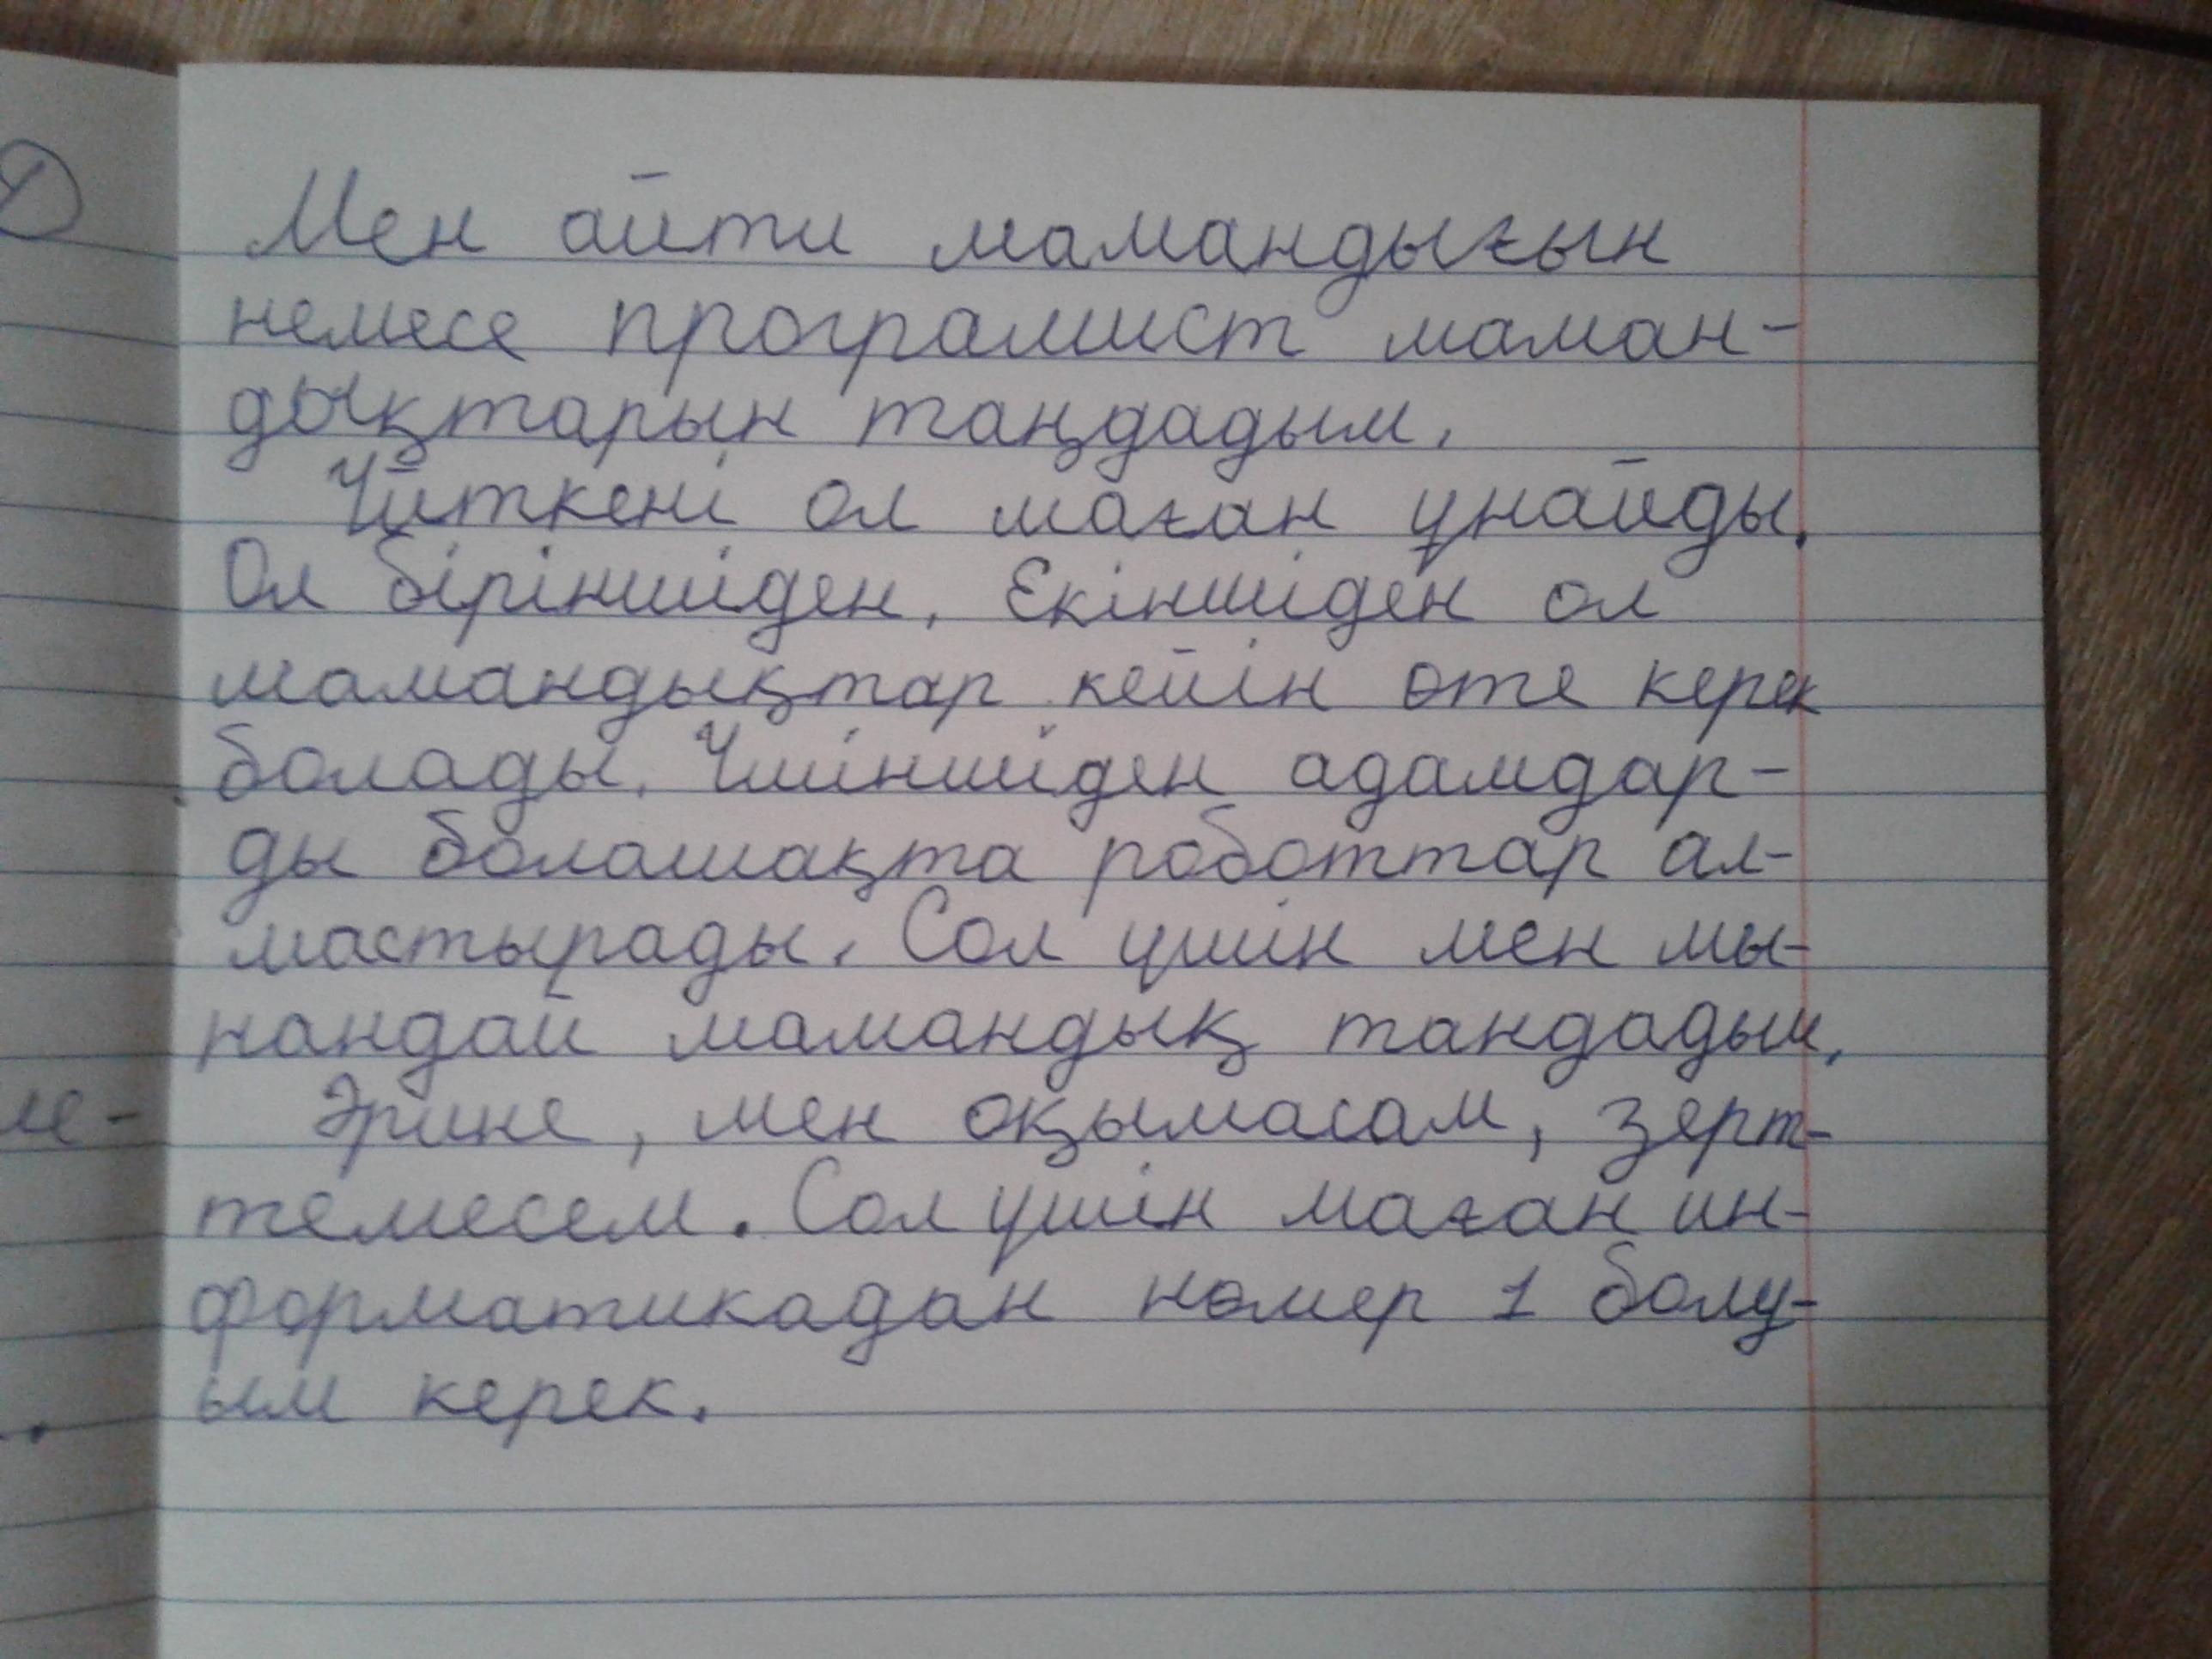 Мен айти мамандығын
немесе програмист маман-
дықтарын таңдадым.
Үйткені ол маған ұнайды.
Ол біріншіден. Екіншіден ол
мамандықтар кейін өте керек
болады. Үшіншіден адамдар-
ды болашақта роботтар ал-
мастырады. Сол үшін мен мы-
нандай мамандық тандадым.
Әрине, мен оқымасам, зерт-
темесем. Сол үшін маған ин-
форматикадан номер 1 болу-
ым керек.